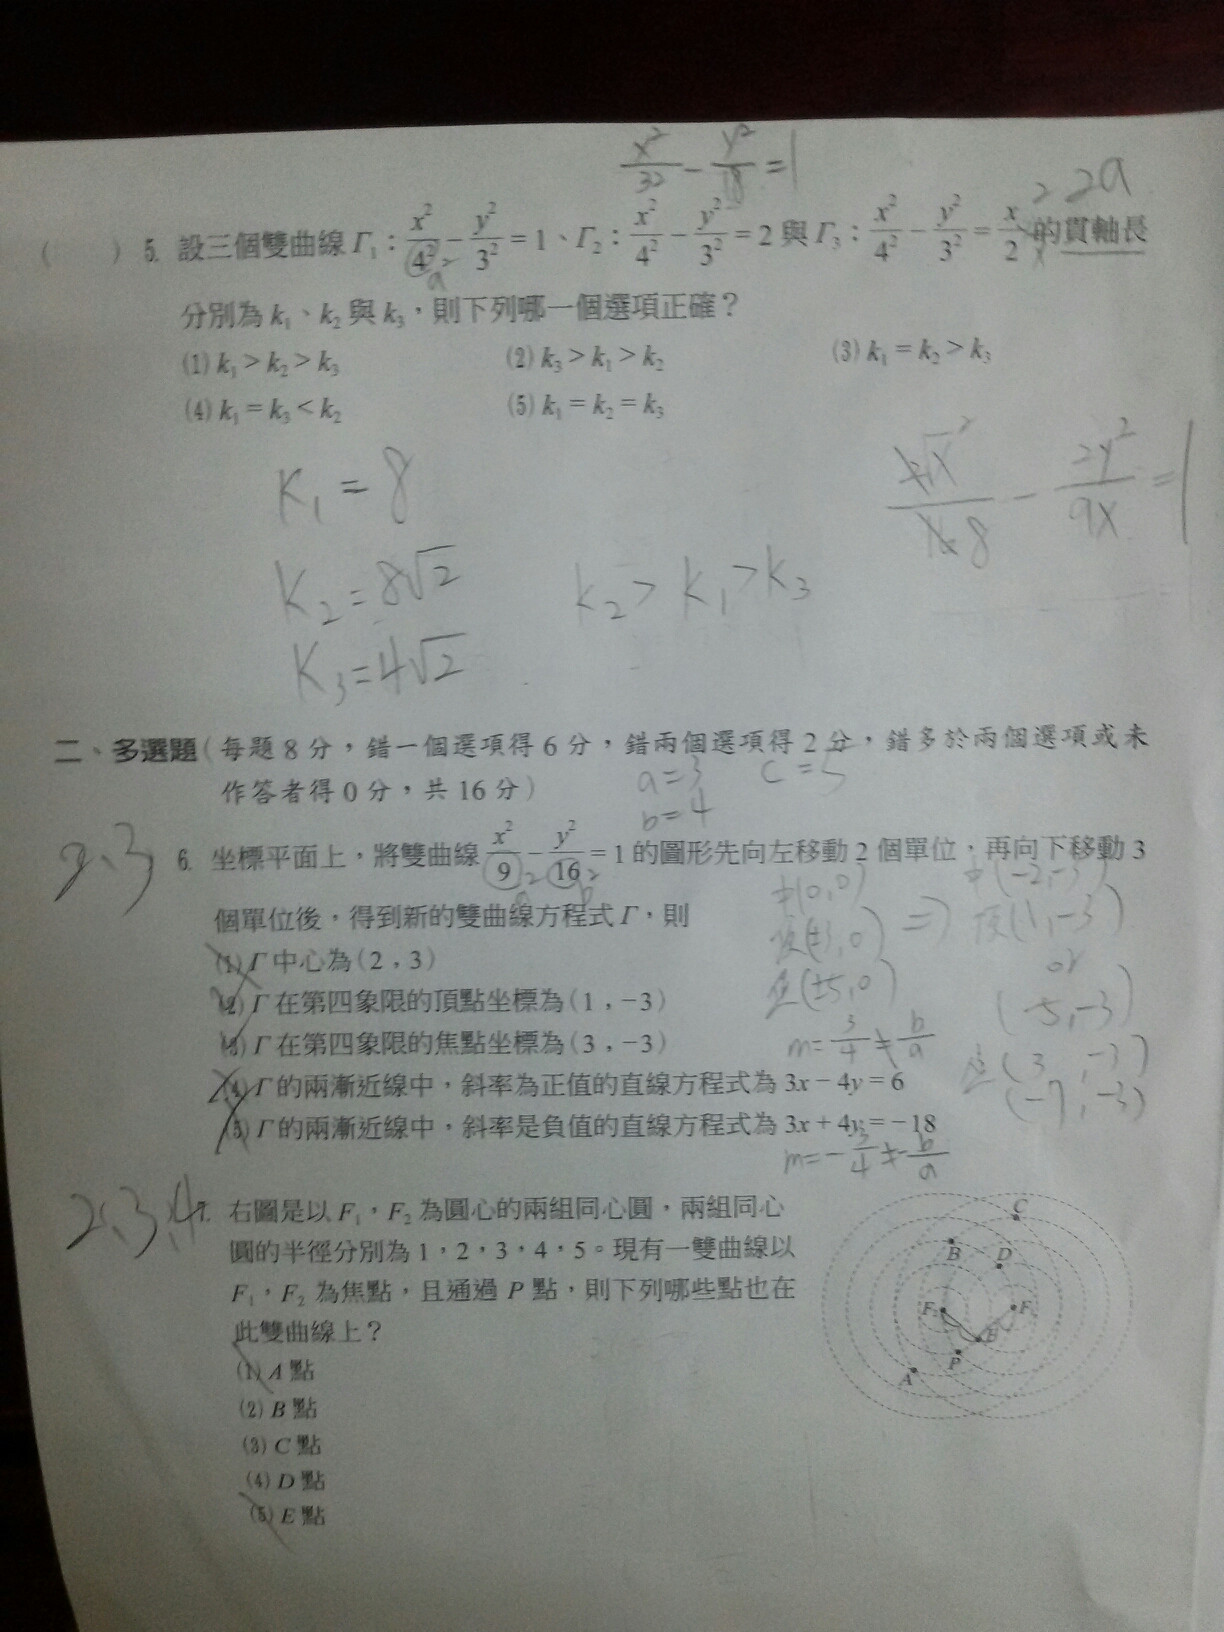 x²/32 − y²/18 = 1
2a
( ) 5. 設三個雙曲線 Γ₁：x²/4² − y²/3² = 1、Γ₂：x²/4² − y²/3² = 2 與 Γ₃：x²/4² − y²/3² = x/2 的貫軸長
a²
分別為 k₁、k₂ 與 k₃，則下列哪一個選項正確？
(1) k₁ > k₂ > k₃ (2) k₃ > k₁ > k₂ (3) k₁ = k₂ > k₃
(4) k₁ = k₃ < k₂ (5) k₁ = k₂ = k₃
− 2y²/9x = 1
K₁ = 8
K₂ = 8√2 k₂ > k₁ > k₃
K₃ = 4√2
二、多選題（每題 8 分，錯一個選項得 6 分，錯兩個選項得 2 分，錯多於兩個選項或未
作答者得 0 分，共 16 分）
a=3 c=5
b=4
2、3
6. 坐標平面上，將雙曲線 x²/9 − y²/16 = 1 的圖形先向左移動 2 個單位，再向下移動 3
a² b²
個單位後，得到新的雙曲線方程式 Γ，則
中(0,0) 中(-2,-3)
頂(±3,0) ⇒ 頂(1,-3)
or
焦(±5,0) (-5,-3)
焦(3,-3)
(-7,-3)
(1) Γ 中心為（2，3）
(2) Γ 在第四象限的頂點坐標為（1，−3）
(3) Γ 在第四象限的焦點坐標為（3，−3）
m = 3/4 ≠ b/a
(4) Γ 的兩漸近線中，斜率為正值的直線方程式為 3x − 4y = 6
(5) Γ 的兩漸近線中，斜率是負值的直線方程式為 3x + 4y = −18
m = −3/4 ≠ −b/a
2、3、4
7. 右圖是以 F₁，F₂ 為圓心的兩組同心圓，兩組同心
圓的半徑分別為 1，2，3，4，5。現有一雙曲線以
F₁，F₂ 為焦點，且通過 P 點，則下列哪些點也在
此雙曲線上？
(1) A 點
(2) B 點
(3) C 點
(4) D 點
(5) E 點
C
B D
F₂ F₁
E
P
A